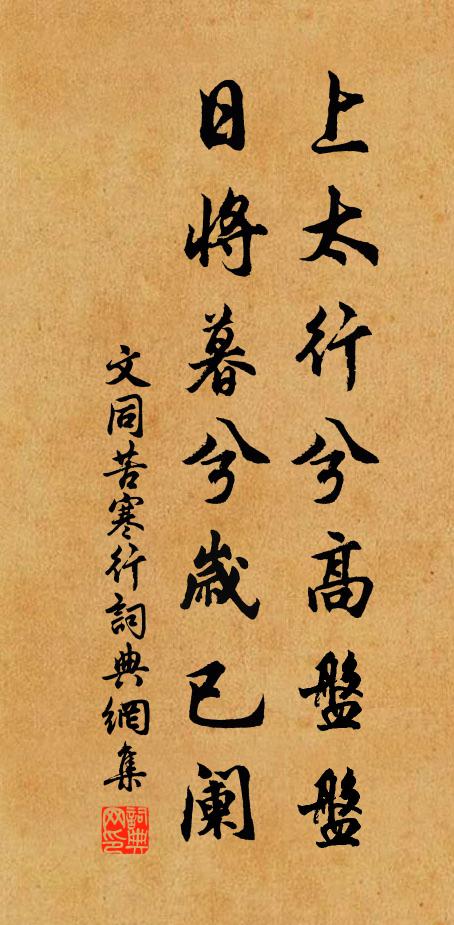 上太行兮高盤盤
日将暮兮歲已阑
文同苦寒行詞典網集
詞典網印